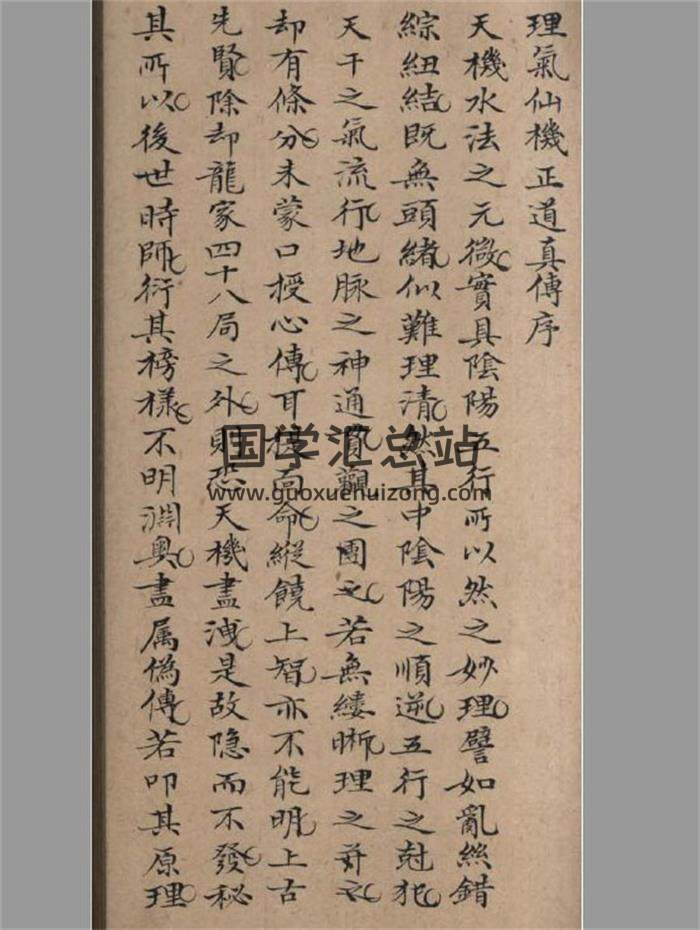 理氣仙機正道真傳序
天機水法之元微實具陰陽五行所以然之妙理譬如亂絲錯
綜紐結既無頭緒似難理清然其中陰陽之順逆五行之尅犯
天干之氣流行地脉之神通貫觀之團文若無縷晰理之并文
却有條分未蒙口授心傳耳提面命縱饒上智亦不能明上古
先賢除却龍家四十八局之外則恐天機盡洩是故隐而不發秘
其所以後世時師衍其榜樣不明淵奧盡属偽傳若叩其原理
国学汇总站
www.guoxuehuizong.com